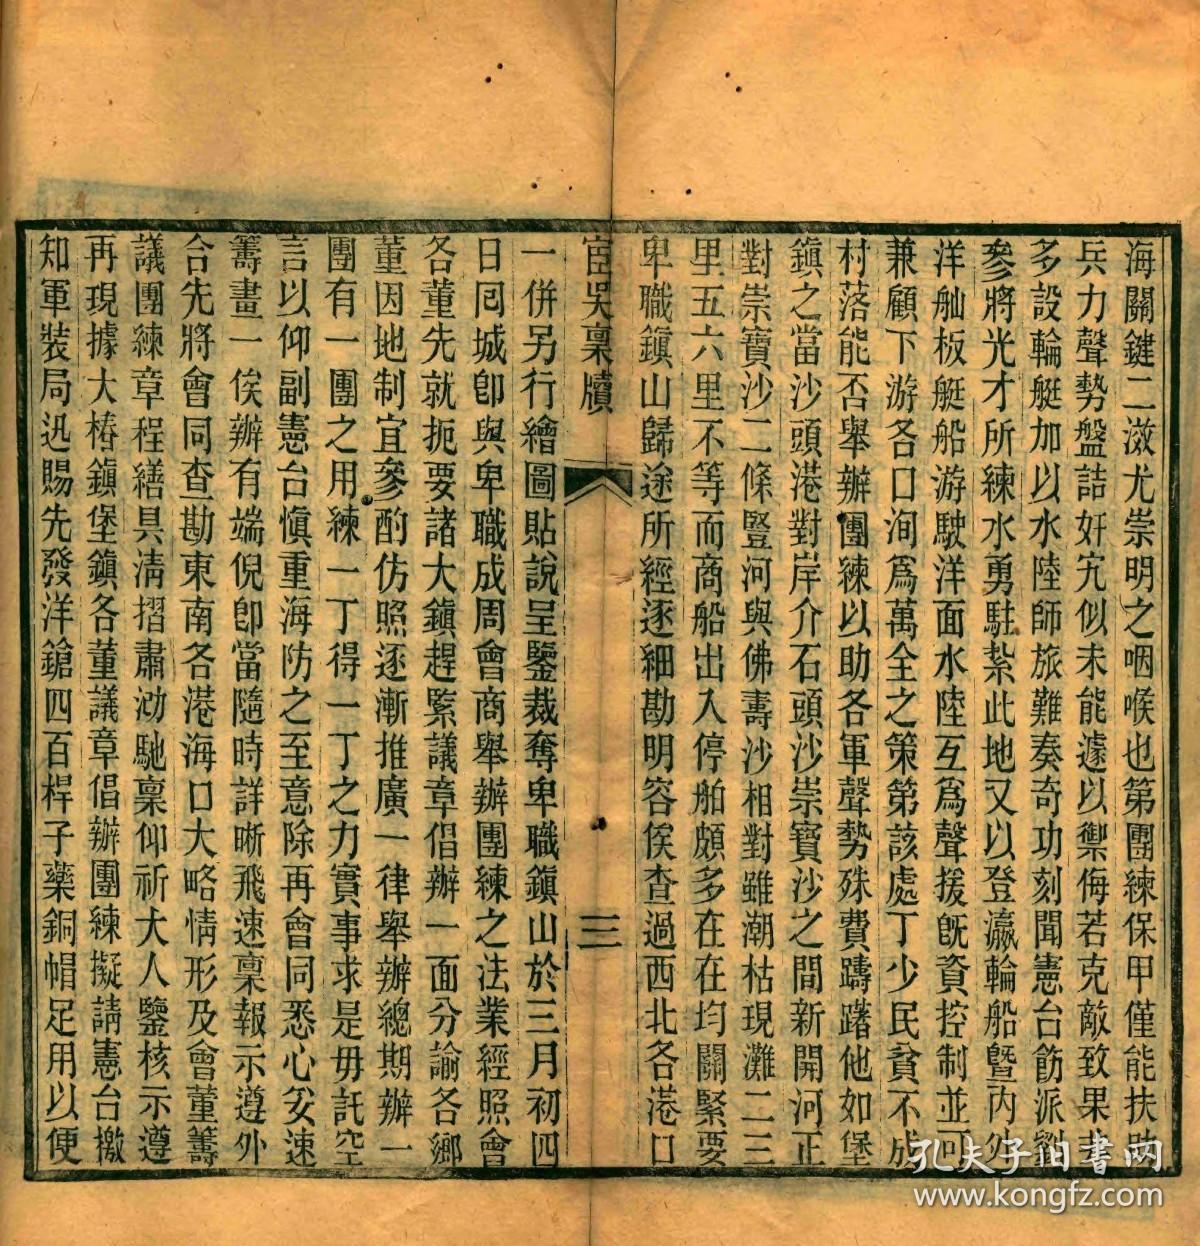 海關鍵二漵尤崇明之咽喉也第團練保甲僅能扶助
兵力聲勢盤詰奸宄似未能遽以禦侮若克敵致果非
多設輪艇加以水陸師旅難奏奇功刻聞憲台飭派劉
參將光才所練水勇駐紮此地又以登瀛輪船曁內外
洋舢板艇船游駛洋面水陸互爲聲援旣資控制並可
兼顧下游各口洵爲萬全之策第該處丁少民貧不成
村落能否舉辦團練以助各軍聲勢殊費躊躇他如堡
鎭之當沙頭港對岸介石頭沙崇寶沙之間新開河正
對崇寶沙二條豎河與佛壽沙相對雖潮枯現灘二三
里五六里不等而商船出入停舶頗多在在均關緊要
卑職鎭山歸途所經逐細勘明容俟查過西北各港口
宦吳稟牘
三
一併另行繪圖貼說呈鑒裁奪卑職鎭山於三月初四
日囘城卽與卑職成周會商舉辦團練之法業經照會
各董先就扼要諸大鎭趕緊議章倡辦一面分諭各鄉
董因地制宜參酌仿照逐漸推廣一律舉辦總期辦一
團有一團之用練一丁得一丁之力實事求是毋託空
言以仰副憲台愼重海防之至意除再會同悉心妥速
籌畫一俟辦有端倪卽當隨時詳晰飛速稟報示遵外
合先將會同查勘東南各港海口大略情形及會董籌
議團練章程繕具淸摺肅泐馳稟仰祈大人鑒核示遵
再現據大椿鎭堡鎭各董議章倡辦團練擬請憲台檄
知軍裝局迅賜先發洋鎗四百桿子藥銅帽足用以便
孔夫子旧书网
www.kongfz.com